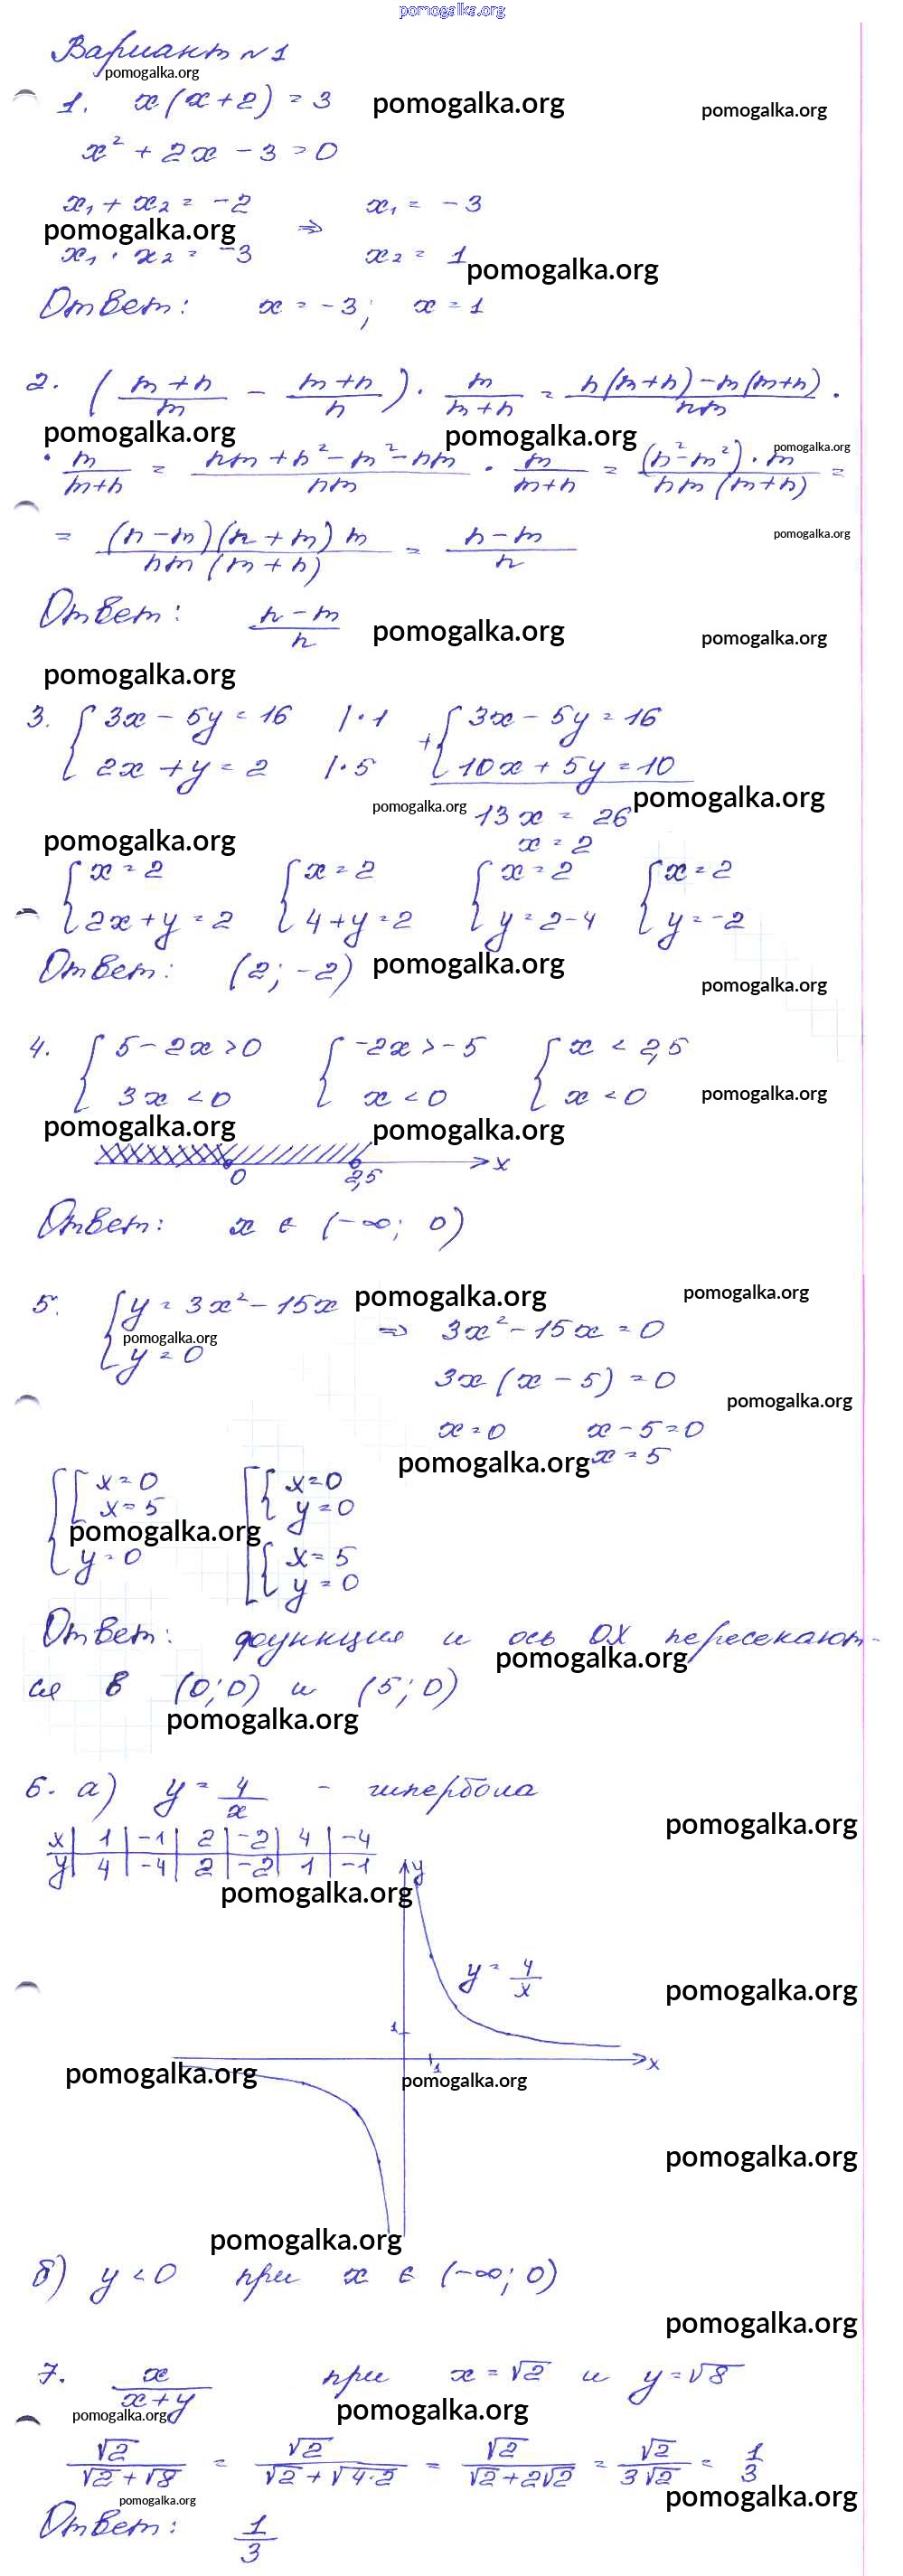 pomogalka.org
Вариант №1
pomogalka.org
1. x(x+2) = 3 pomogalka.org pomogalka.org
x² + 2x - 3 = 0
x₁ + x₂ = -2 x₁ = -3
pomogalka.org ⇒
x₁ · x₂ = -3 x₂ = 1
pomogalka.org
Ответ: x = -3; x = 1
2. ( (m+n)/m - (m+n)/n ) · m/(m+n) = (n(m+n) - m(m+n))/(nm) ·
pomogalka.org pomogalka.org pomogalka.org
· m/(m+n) = (nm + n² - m² - nm)/(nm) · m/(m+n) = ((n² - m²) · m)/(nm(m+n)) =
= ((n-m)(n+m)m)/(nm(m+n)) = (n-m)/n pomogalka.org
Ответ: (n-m)/n pomogalka.org pomogalka.org
pomogalka.org
3. { 3x - 5y = 16 |·1 + { 3x - 5y = 16
2x + y = 2 |·5 10x + 5y = 10
pomogalka.org 13x = 26 pomogalka.org
pomogalka.org x = 2
{ x = 2 { x = 2 { x = 2 { x = 2
2x + y = 2 4 + y = 2 y = 2-4 y = -2
Ответ: (2; -2) pomogalka.org pomogalka.org
4. { 5 - 2x > 0 { -2x > -5 { x < 2,5
3x < 0 x < 0 x < 0 pomogalka.org
pomogalka.org pomogalka.org
0 2,5 x
Ответ: x ∈ (-∞; 0)
5. { y = 3x² - 15x pomogalka.org pomogalka.org
pomogalka.org ⇒ 3x² - 15x = 0
y = 0
3x(x - 5) = 0
pomogalka.org
x = 0 x - 5 = 0
pomogalka.org x = 5
{ [ x = 0 [ { x = 0
x = 5 y = 0
pomogalka.org
y = 0 { x = 5
y = 0
Ответ: функция и ось OX пересекают-
pomogalka.org
ся в (0; 0) и (5; 0)
pomogalka.org
6. а) y = 4/x - гипербола
pomogalka.org
x | 1 | -1 | 2 | -2 | 4 | -4
y | 4 | -4 | 2 | -2 | 1 | -1
y
pomogalka.org
y = 4/x
pomogalka.org
1
x
1
pomogalka.org pomogalka.org
pomogalka.org
pomogalka.org
б) y < 0 при x ∈ (-∞; 0)
pomogalka.org
7. x/(x+y) при x = √2 и y = √8
pomogalka.org pomogalka.org
√2/(√2+√8) = √2/(√2+√(4·2)) = √2/(√2+2√2) = √2/(3√2) = 1/3
pomogalka.org pomogalka.org
Ответ: 1/3